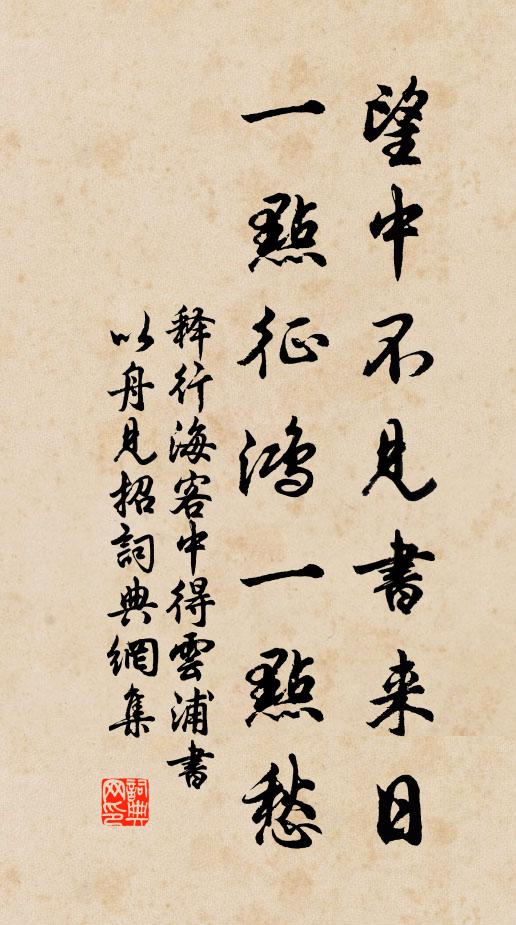 望中不見書来日
一點征鴻一點愁
释行海客中得雲浦書
以舟見招詞典網集
詞典网印